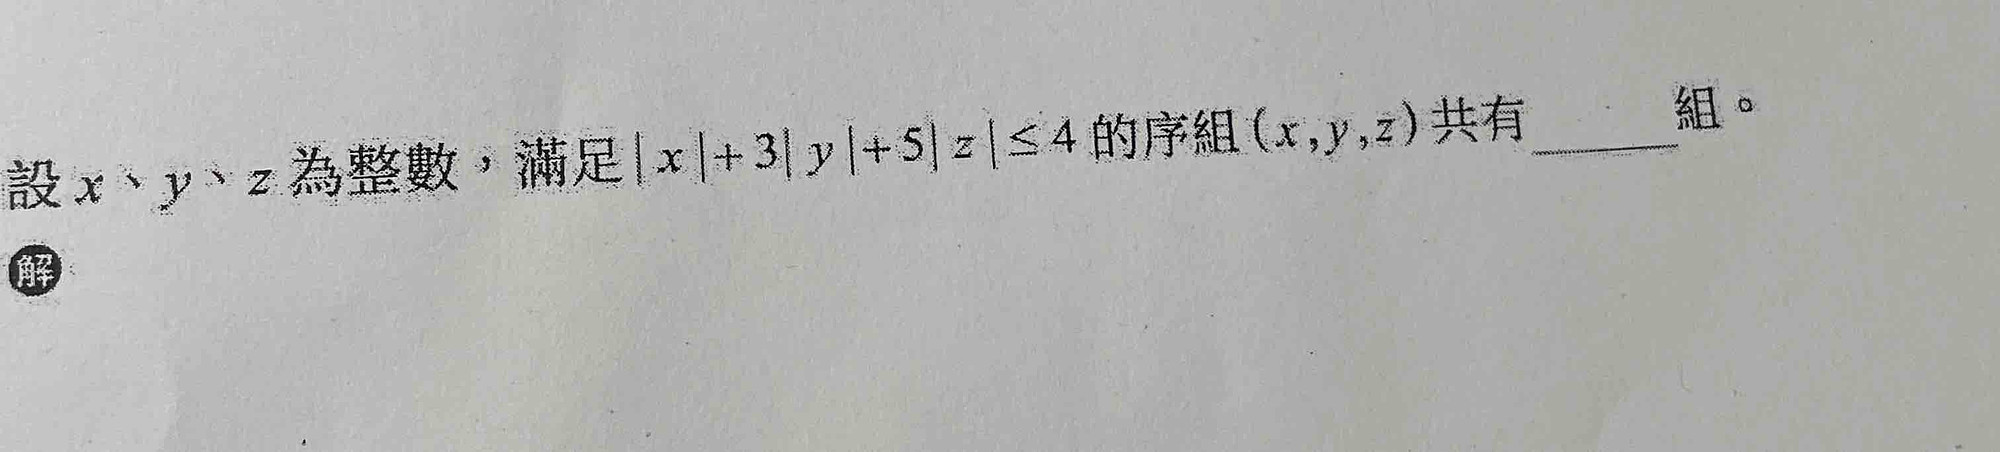 設 x、y、z 為整數，滿足|x|+3|y|+5|z|≤4 的序組(x,y,z)共有______組。
解